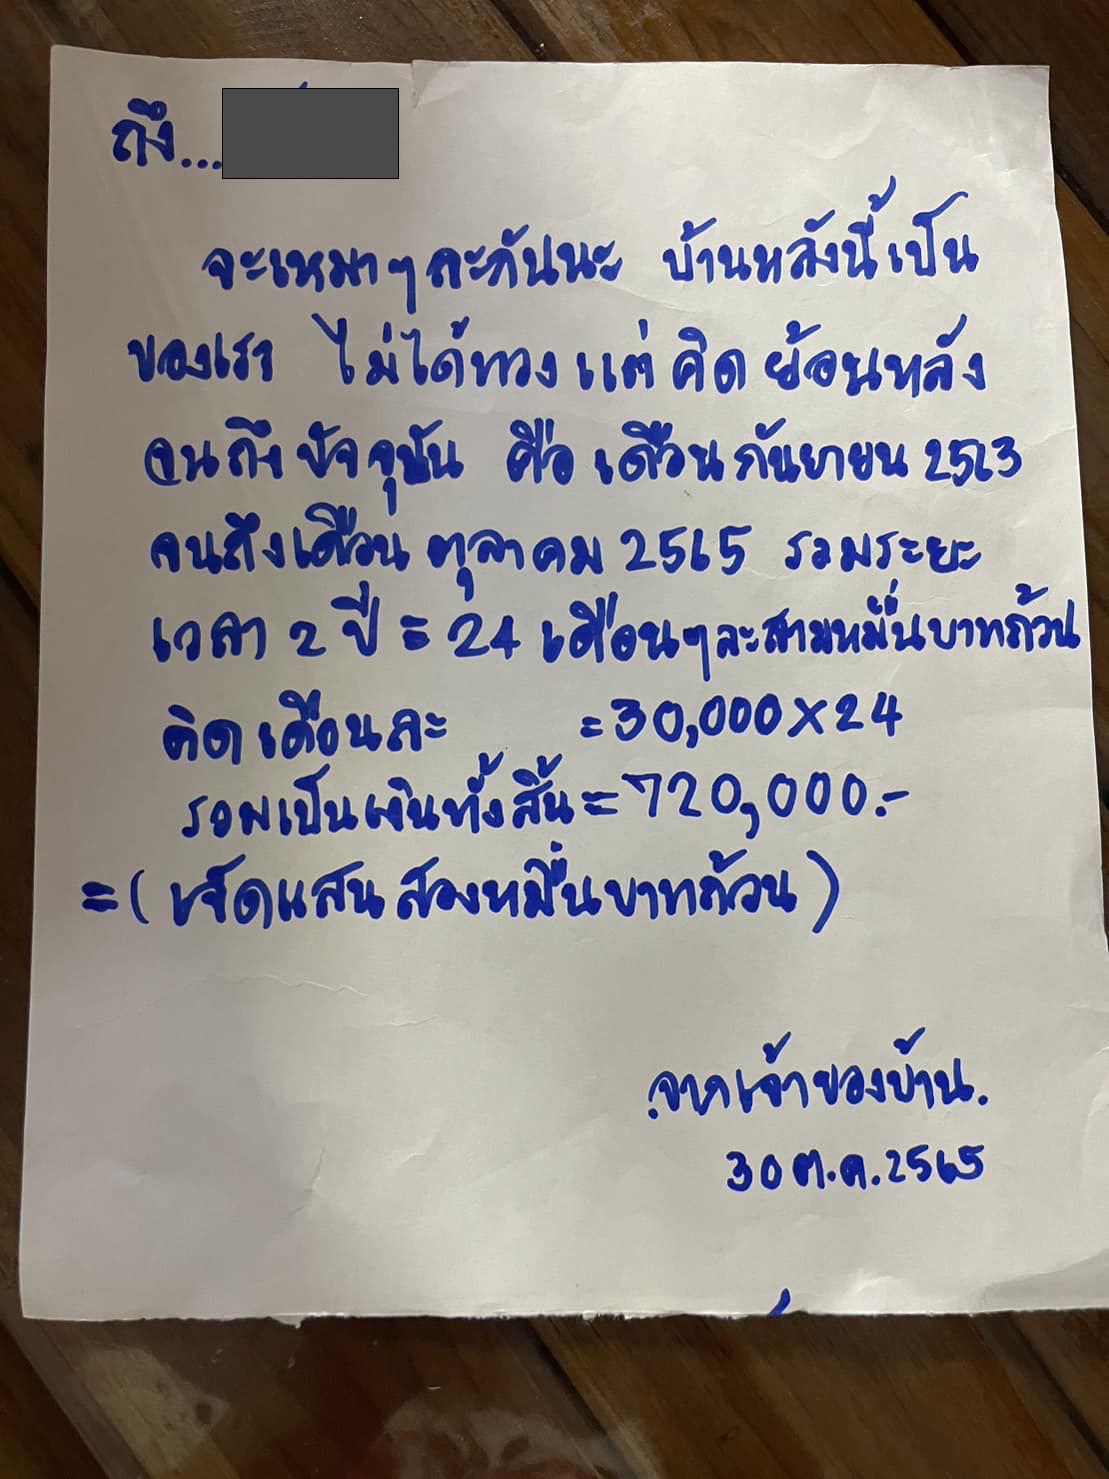 ถึง...
จะเหมาๆละกันนะ บ้านหลังนี้เป็น
ของเรา ไม่ได้ทวงแต่คิดย้อนหลัง
จนถึงปัจจุบัน คือ เดือนกันยายน 2563
จนถึงเดือน ตุลาคม 2565 รวมระยะ
เวลา 2 ปี = 24 เดือนๆละสามหมื่นบาทถ้วน
คิดเดือนละ =30,000×24
รวมเป็นเงินทั้งสิ้น=720,000.-
=(เจ็ดแสนสองหมื่นบาทถ้วน)
.จากเจ้าของบ้าน.
30 ต.ค.2565